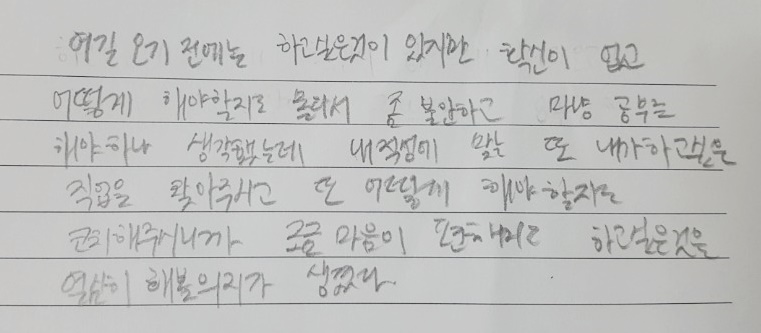 여길 오기 전에는 하고싶은것이 있지만 확신이 없고
어떻게 해야할지도 몰라서 좀 불안하고 마냥 공부는
해야하나 생각했는데 내적성에 맞는 또 내가하고싶은
직업을 찾아주시고 또 어떻게 해야할지도
해주시니까 조금 마음이 하고싶은것을
열심히 해볼의지가 생겼다.